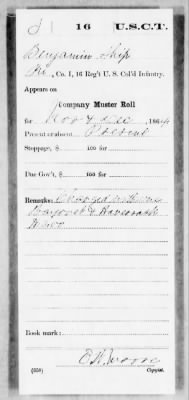 S 16 U.S.C.T.
Benjamin Ship
Pvt., Co. I, 16 Reg't U. S. Col'd Infantry.
Appears on
Company Muster Roll
for Nov & Dec, 1864
Present or absent Present
Stoppage, $ 100 for
Due Gov't, $ 100 for
Remarks: Charged with one
Bayonet & Haversack
Book mark:
E.W. Moore
(358) Copyist.